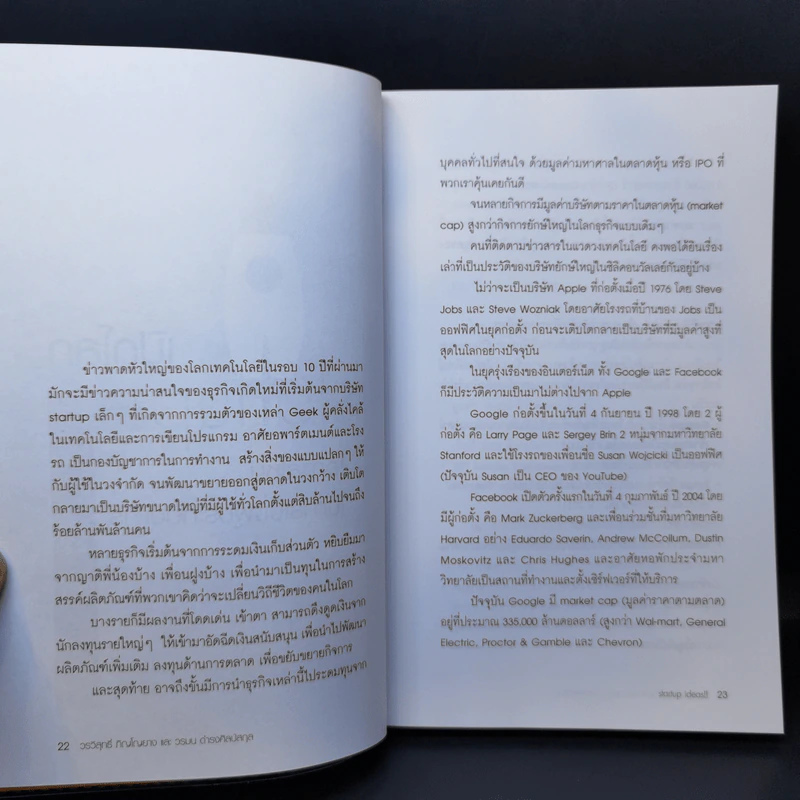 ข่าวพาดหัวใหญ่ของโลกเทคโนโลยีในรอบ 10 ปีที่ผ่านมา
มักจะมีข่าวความน่าสนใจของธุรกิจเกิดใหม่ที่เริ่มต้นจากบริษัท
startup เล็กๆ ที่เกิดจากการรวมตัวของเหล่า Geek ผู้คลั่งไคล้
ในเทคโนโลยีและการเขียนโปรแกรม อาศัยอพาร์ตเมนต์และโรง
รถ เป็นกองบัญชาการในการทำงาน สร้างสิ่งของแบบแปลกๆ ให้
กับผู้ใช้ในวงจำกัด จนพัฒนาขยายออกสู่ตลาดในวงกว้าง เติบโต
กลายมาเป็นบริษัทขนาดใหญ่ที่มีผู้ใช้ทั่วโลกตั้งแต่สิบล้านไปจนถึง
ร้อยล้านพันล้านคน
หลายธุรกิจเริ่มต้นจากการระดมเงินเก็บส่วนตัว หยิบยืมมา
จากญาติพี่น้องบ้าง เพื่อนฝูงบ้าง เพื่อนำมาเป็นทุนในการสร้าง
สรรค์ผลิตภัณฑ์ที่พวกเขาคิดว่าจะเปลี่ยนวิถีชีวิตของคนในโลก
บางรายก็มีผลงานที่โดดเด่น เข้าตา สามารถดึงดูดเงินจาก
นักลงทุนรายใหญ่ๆ ให้เข้ามาอัดฉีดเงินสนับสนุน เพื่อนำไปพัฒนา
ผลิตภัณฑ์เพิ่มเติม ลงทุนด้านการตลาด เพื่อขยับขยายกิจการ
และสุดท้าย อาจถึงขั้นมีการนำธุรกิจเหล่านี้ไประดมทุนจาก
22 วรวิสุทธิ์ ภิญโญยาง และ วรมน ดำรงศิลป์สกุล
บุคคลทั่วไปที่สนใจ ด้วยมูลค่ามหาศาลในตลาดหุ้น หรือ IPO ที่
พวกเราคุ้นเคยกันดี
จนหลายกิจการมีมูลค่าบริษัทตามราคาในตลาดหุ้น (market
cap) สูงกว่ากิจการยักษ์ใหญ่ในโลกธุรกิจแบบเดิมๆ
คนที่ติดตามข่าวสารในแวดวงเทคโนโลยี คงพอได้ยินเรื่อง
เล่าที่เป็นประวัติของบริษัทยักษ์ใหญ่ในซิลิคอนวัลเลย์กันอยู่บ้าง
ไม่ว่าจะเป็นบริษัท Apple ที่ก่อตั้งเมื่อปี 1976 โดย Steve
Jobs และ Steve Wozniak โดยอาศัยโรงรถที่บ้านของ Jobs เป็น
ออฟฟิศในยุคก่อตั้ง ก่อนจะเติบโตกลายเป็นบริษัทที่มีมูลค่าสูงที่
สุดในโลกอย่างปัจจุบัน
ในยุครุ่งเรืองของอินเตอร์เน็ต ทั้ง Google และ Facebook
ก็มีประวัติความเป็นมาไม่ต่างไปจาก Apple
Google ก่อตั้งขึ้นในวันที่ 4 กันยายน ปี 1998 โดย 2 ผู้
ก่อตั้ง คือ Larry Page และ Sergey Brin 2 หนุ่มจากมหาวิทยาลัย
Stanford และใช้โรงรถของเพื่อนชื่อ Susan Wojcicki เป็นออฟฟิศ
(ปัจจุบัน Susan เป็น CEO ของ YouTube)
Facebook เปิดตัวครั้งแรกในวันที่ 4 กุมภาพันธ์ ปี 2004 โดย
มีผู้ก่อตั้ง คือ Mark Zuckerberg และเพื่อนร่วมชั้นที่มหาวิทยาลัย
Harvard อย่าง Eduardo Saverin, Andrew McCollum, Dustin
Moskovitz และ Chris Hughes และอาศัยหอพักประจำมหา
วิทยาลัยเป็นสถานที่ทำงานและตั้งเซิร์ฟเวอร์ที่ให้บริการ
ปัจจุบัน Google มี market cap (มูลค่าราคาตามตลาด)
อยู่ที่ประมาณ 335,000 ล้านดอลลาร์ (สูงกว่า Wal-mart, General
Electric, Proctor & Gamble และ Chevron)
startup ideas!! 23